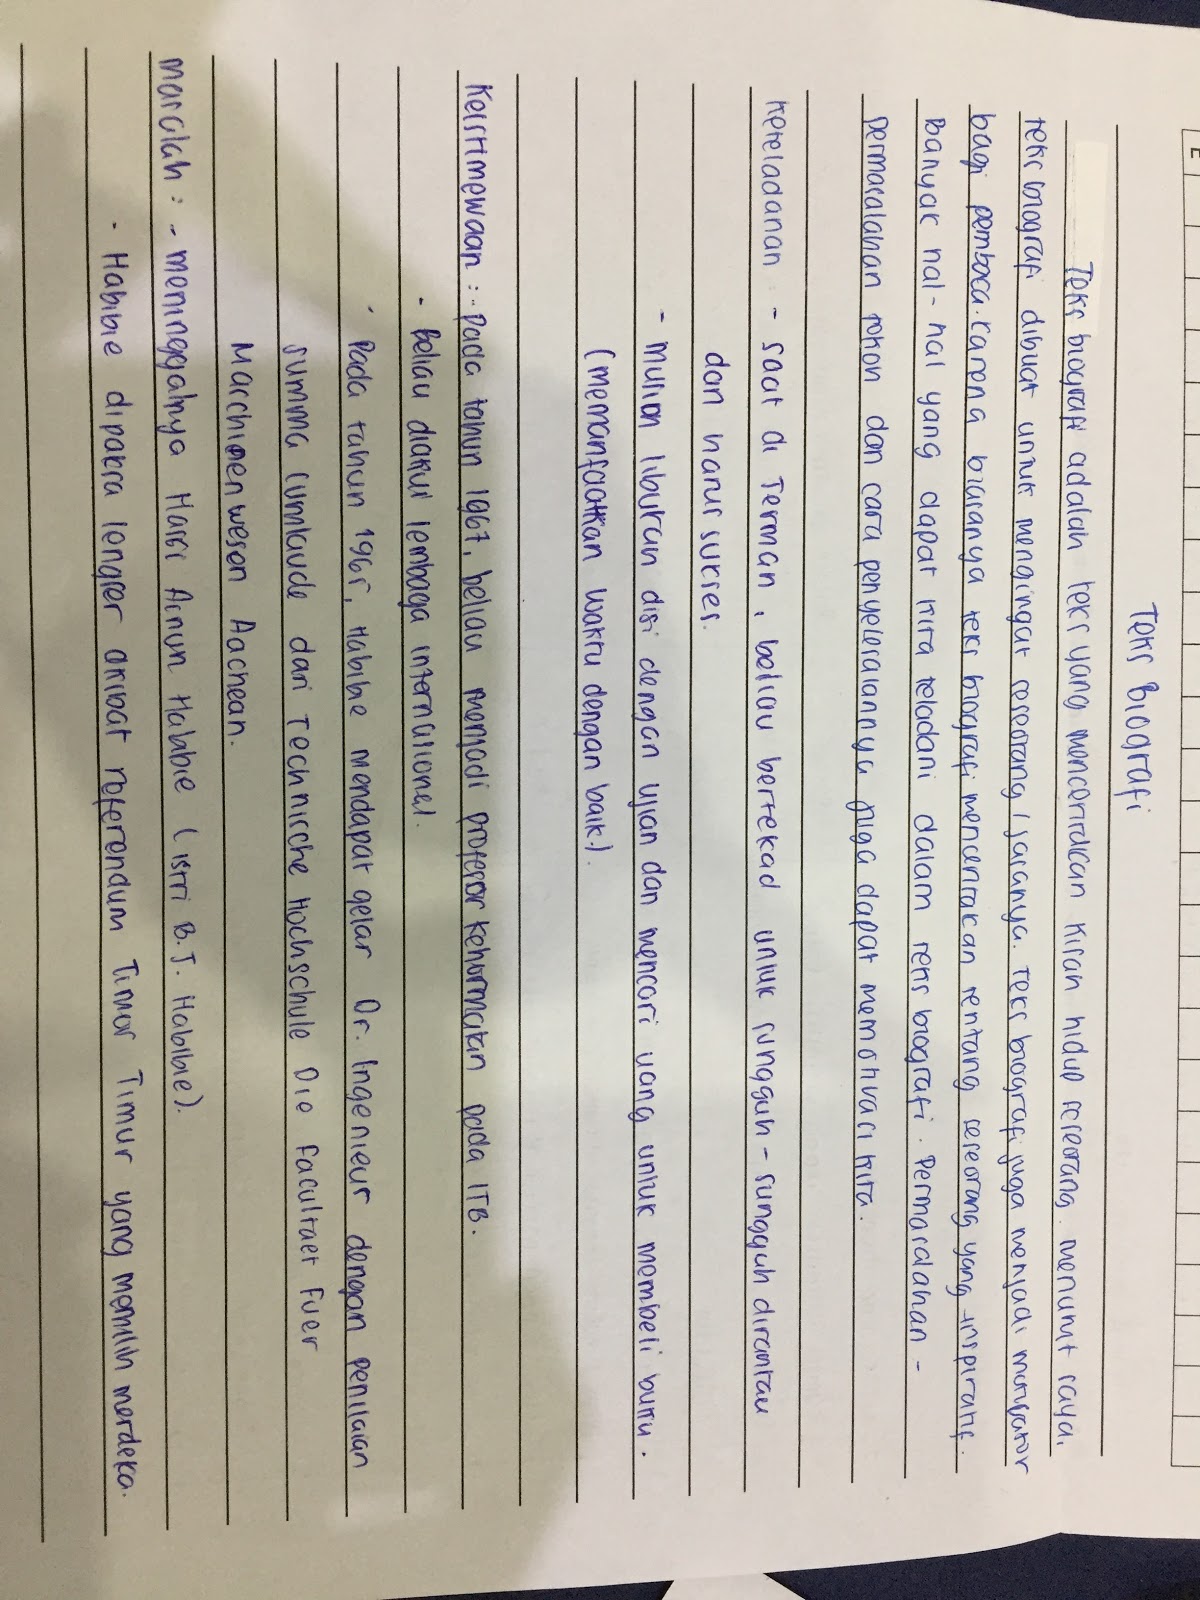 Teks Biografi
Teks biografi adalah teks yang menceritakan kisah hidup seseorang. menurut saya,
teks biografi dibuat untuk mengingat seseorang / jasanya. Teks biografi juga menjadi motivator
bagi pembaca. Karena biasanya teks biografi menceritakan tentang seseorang yang inspiratif.
Banyak hal-hal yang dapat kita teladani dalam teks biografi. Permasalahan-
permasalahan tokoh dan cara penyelesaiannya juga dapat memotivasi kita.
Keteladanan : - saat di Jerman, beliau bertekad untuk sungguh-sungguh dirantau
dan harus sukses.
- musim liburan diisi dengan ujian dan mencari uang untuk membeli buku.
(memanfaatkan waktu dengan baik.).
Keistimewaan : - Pada tahun 1967, beliau menjadi profesor kehormatan pada ITB.
- Beliau diakui lembaga internasional.
- Pada tahun 1965, Habibie mendapat gelar Dr. Ingenieur dengan penilaian
summa cumlaude dari Technische Hochschule Die Facultaet Fuer
Maschipenwesen Aachean.
Masalah : - meningalnya Hasri Ainun Habbie (istri B.J. Habibie).
- Habibie dipaksa lengser akibat referendum Timor Timur yang memilih merdeka.